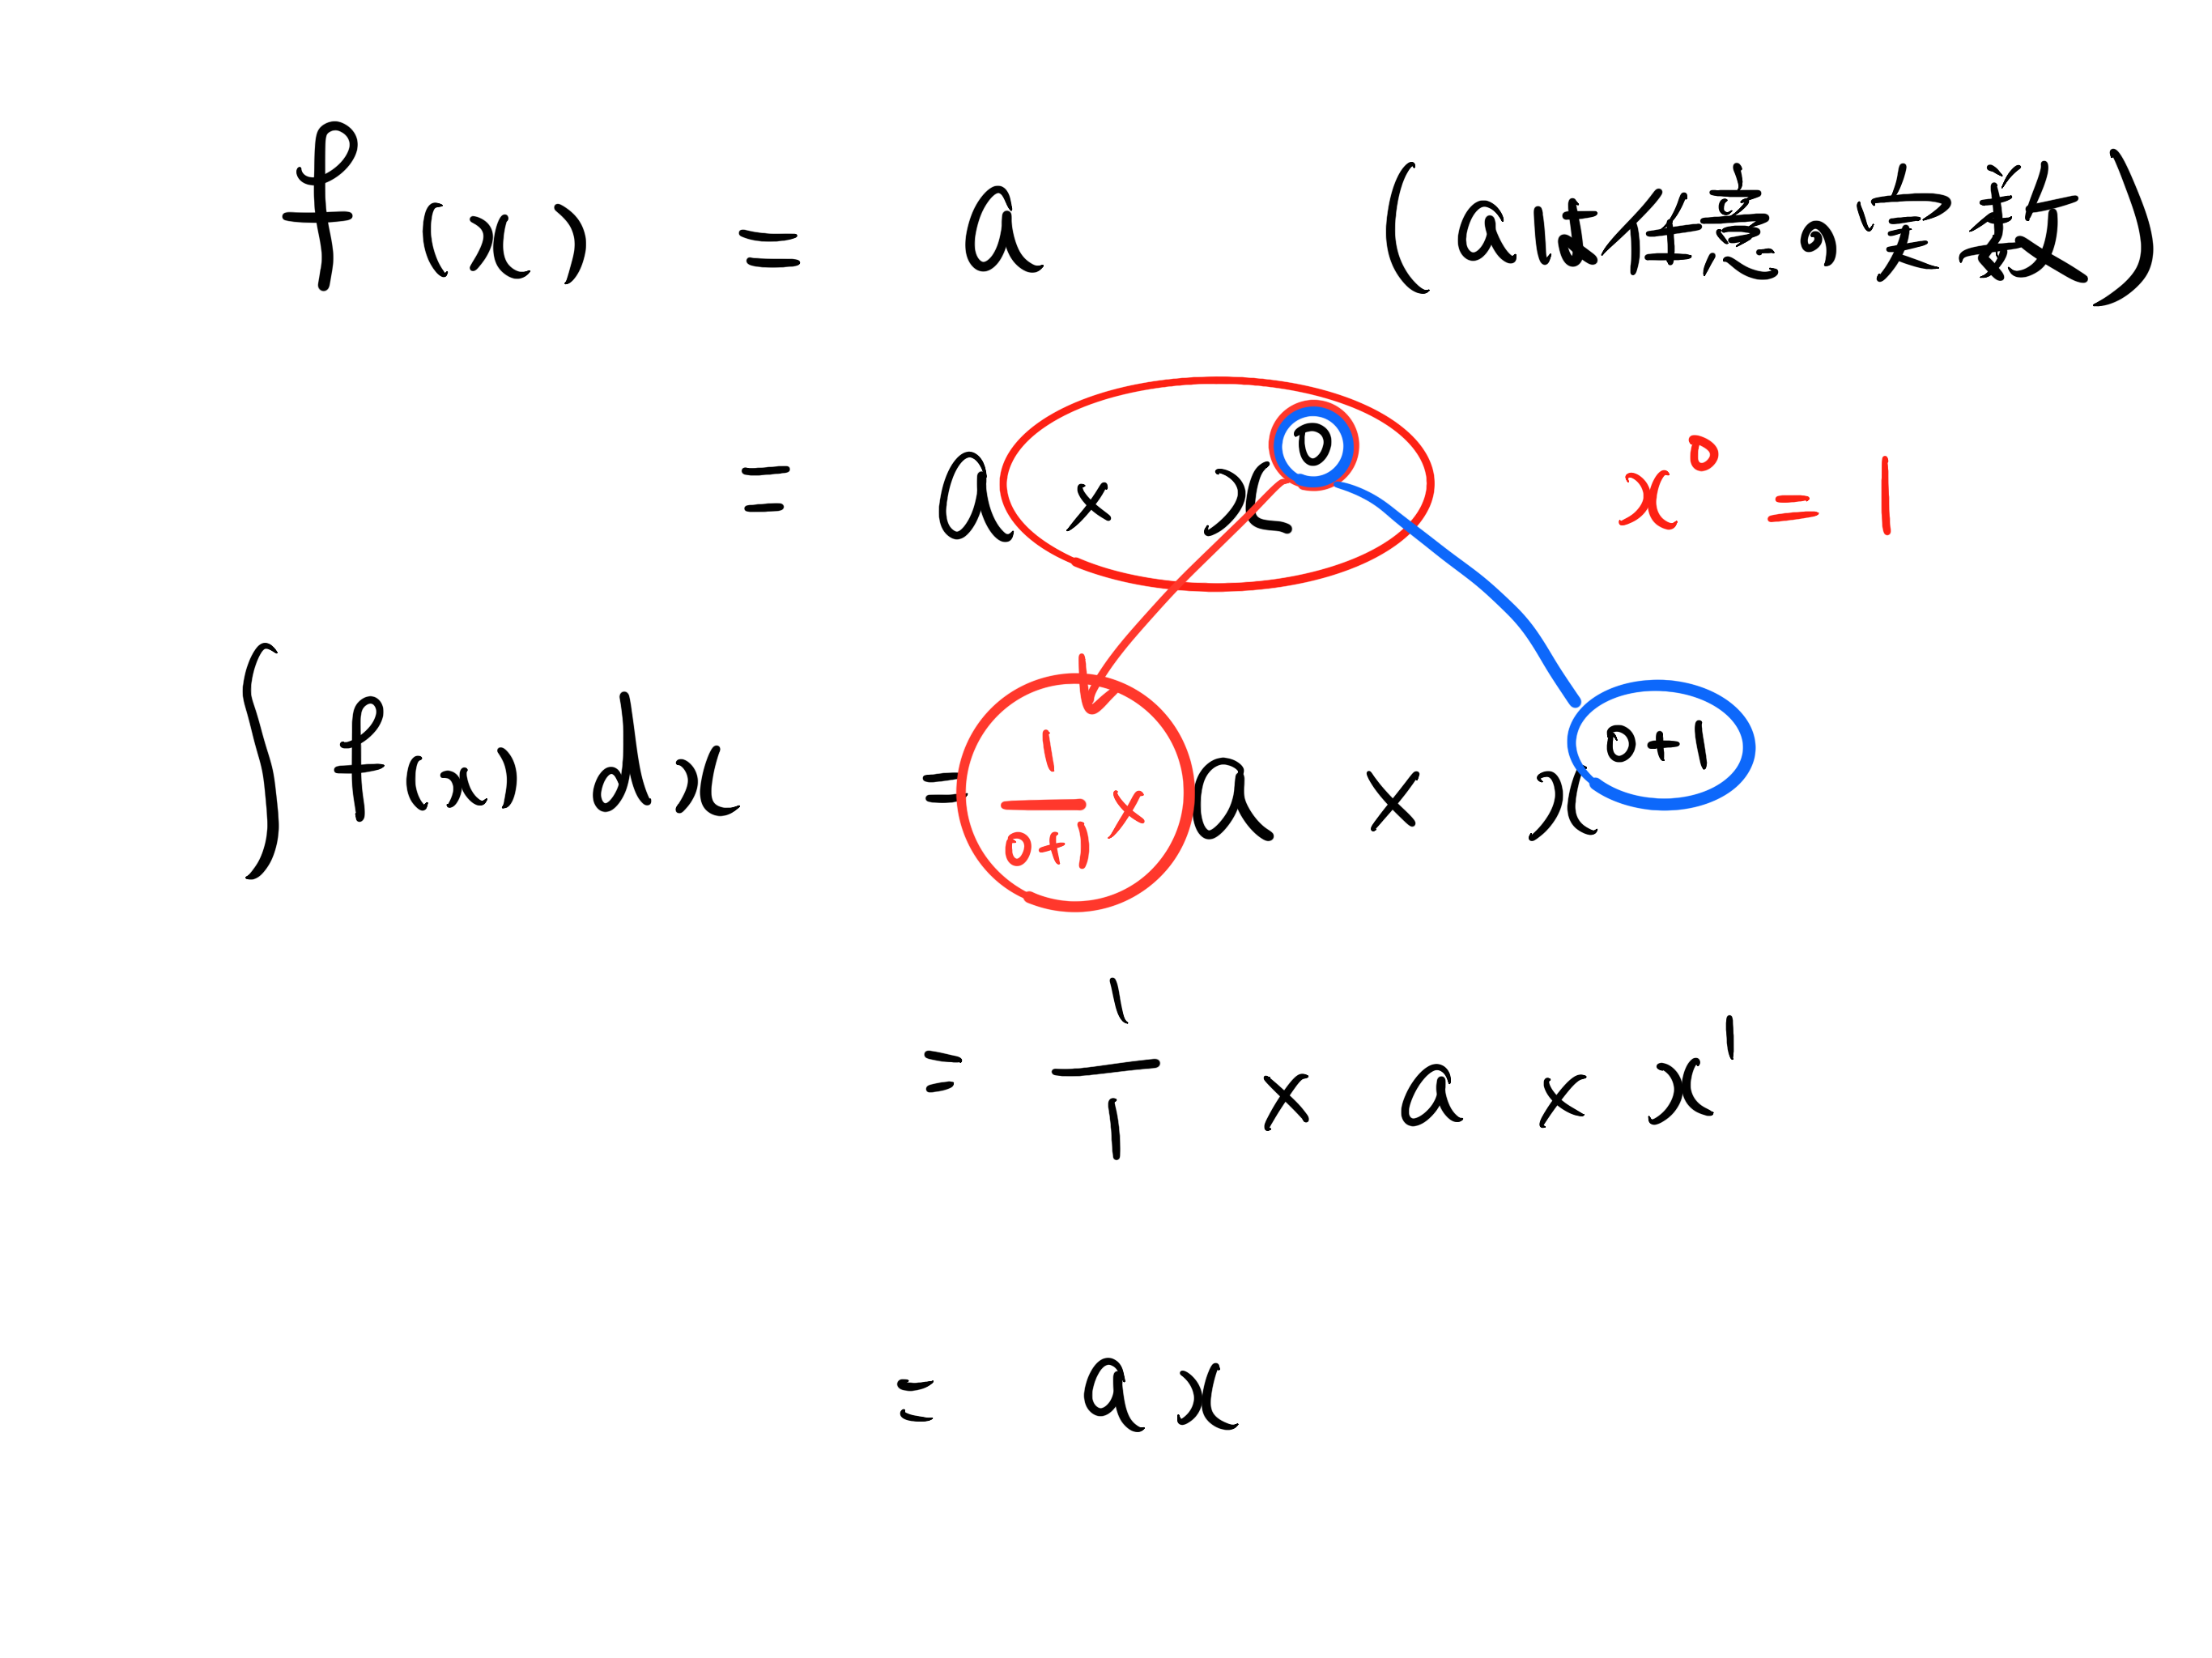 f(x) = a (aは任意の定数)
= a × x⁰ x⁰ = 1
∫f(x)dx = 1/(0+1) × a × x⁰⁺¹
= 1/1 × a × x¹
= ax